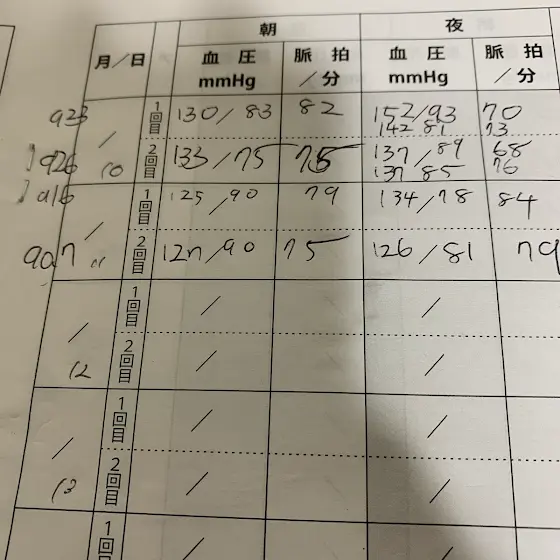 朝 夜
月/日 血圧 mmHg 脈拍 /分 血圧 mmHg 脈拍 /分
923 / 1回目 130/83 82 152/93 70
142 81 73
926 10 2回目 133/75 75 137/89 68
137 85 76
916 / 1回目 125/90 79 134/78 84
907 11 2回目 127/90 75 126/81 79
/ 1回目 / /
12 2回目 / /
/ 1回目 / /
13 2回目 / /
1回目 / /